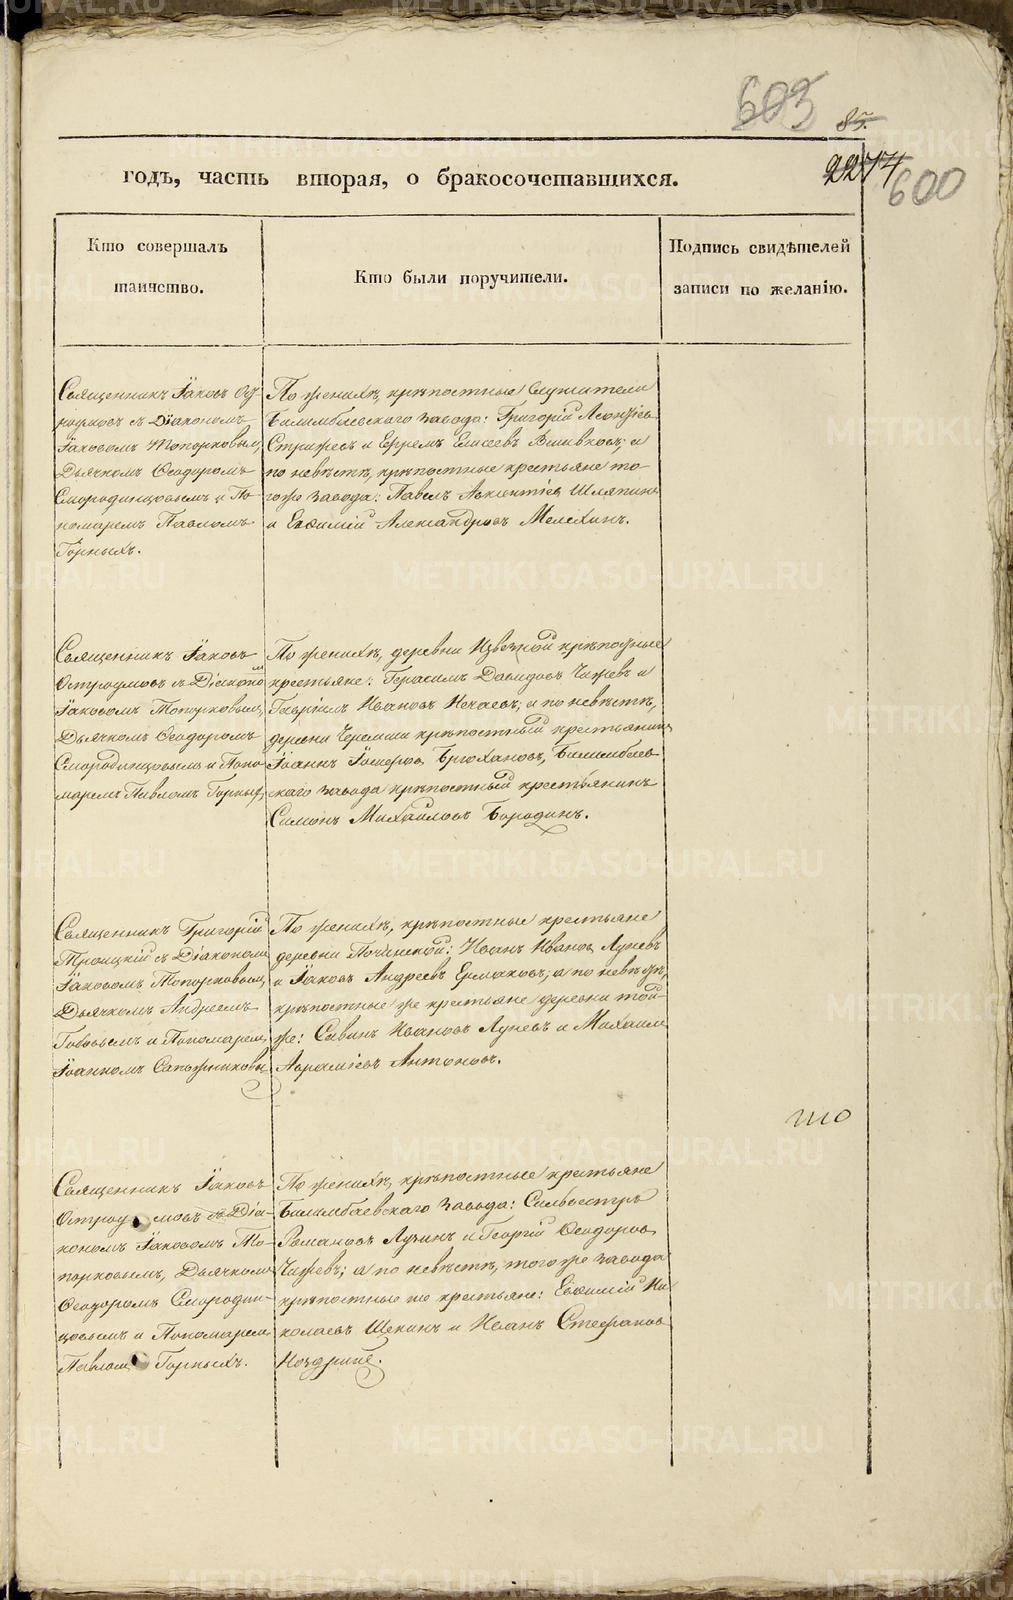 603
85.
2274
600
годъ, часть вторая, о бракосочетавшихся.
Кто совершалъ
таинство.
Кто были поручители.
Подпись свидѣтелей
записи по желанію.
Священникъ Іаковъ Ост
роумовъ съ Діакономъ
Іаковомъ Топорковымъ,
Дьячкомъ Ѳеодоромъ
Смородинцовымъ и По-
номаремъ Павломъ
Горныхъ.
По женихѣ, крѣпостные служители
Билимбаевскаго завода: Григорій Леонтіевъ
и Ефремъ Елисеевъ Вшивковъ; а
по невѣстѣ, крѣпостные крестьяне то-
гоже завода: Павелъ Шляпинъ
и Евѳимій Александровъ Мелехинъ.
Священникъ Іаковъ
Остроумовъ съ Діакономъ
Іаковомъ Топорковымъ,
Дьячкомъ Ѳеодоромъ
Смородинцовымъ и Поно-
маремъ Павломъ Горныхъ,
По женихѣ, деревни Извезной крѣпостные
крестьяне: Герасимъ Давидовъ Чижевъ и
Гавріилъ Ивановъ Нечаевъ; а по невѣстѣ,
деревни Черемши крѣпостный крестьянинъ
Іоаннъ Брюхановъ, Билимбаев-
скаго завода крѣпостный крестьянинъ
Симонъ Михайловъ Бородинъ.
Священникъ Григорій
Троицкій съ Діакономъ
Іаковомъ Топорковымъ,
Дьячкомъ Андреемъ
и Пономаремъ
Іоанномъ Сапожниковымъ
По женихѣ, крѣпостные крестьяне
деревни Починской: Иванъ Ивановъ Луневъ
и Іаковъ Андреевъ Ермаковъ; а по невѣстѣ,
крѣпостные же крестьяне деревни той-
же: Савинъ Ивановъ Луневъ и Михаилъ
Авраміевъ Антоновъ.
Священникъ Іаковъ
Остроумовъ съ Діа-
кономъ Іаковомъ То-
порковымъ, Дьячкомъ
Ѳеодоромъ Смородин-
цовымъ и Пономаремъ
Павломъ Горныхъ.
По женихѣ, крѣпостные крестьяне
Билимбаевскаго завода: Сильвестръ
Романовъ Лузинъ и Георгій Ѳеодоровъ
Чижевъ; а по невѣстѣ, того же завода
крѣпостные же крестьяне: Евѳимій Ни-
колаевъ Щекинъ и Иванъ Стефановъ
Ноздринъ.
METRIKI.GASO-URAL.RU